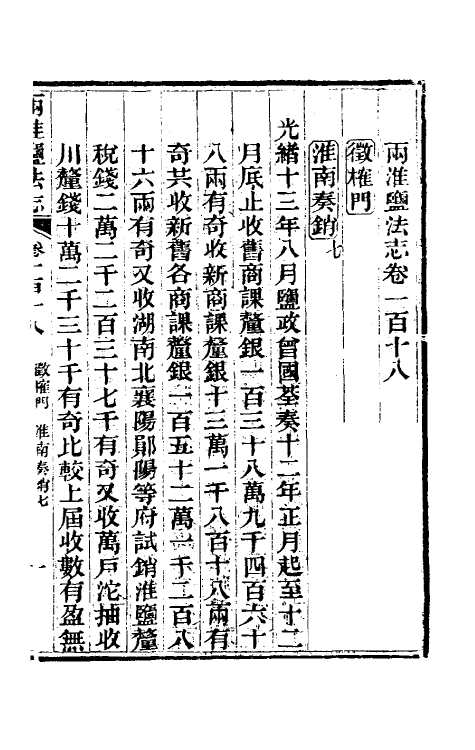 兩淮鹽法志卷一百十八
徵榷門
淮南奏銷七
光緒十三年八月鹽政曾國荃奏十二年正月起至十二
月底止收舊商課釐銀一百三十八萬九千四百六十
八兩有奇收新商課釐銀十三萬一千八百十八兩有
奇共收新舊各商課釐銀一百五十二萬一千二百八
十六兩有奇又收湖南北襄陽鄖陽等府試銷淮鹽釐
稅錢二萬二千二百三十七千有奇又收萬戶沱抽收
川釐錢十萬二千三十千有奇比較上屆收數有盈無
兩淮鹽法志 卷一百十八 徵榷門 淮南奏銷七 一